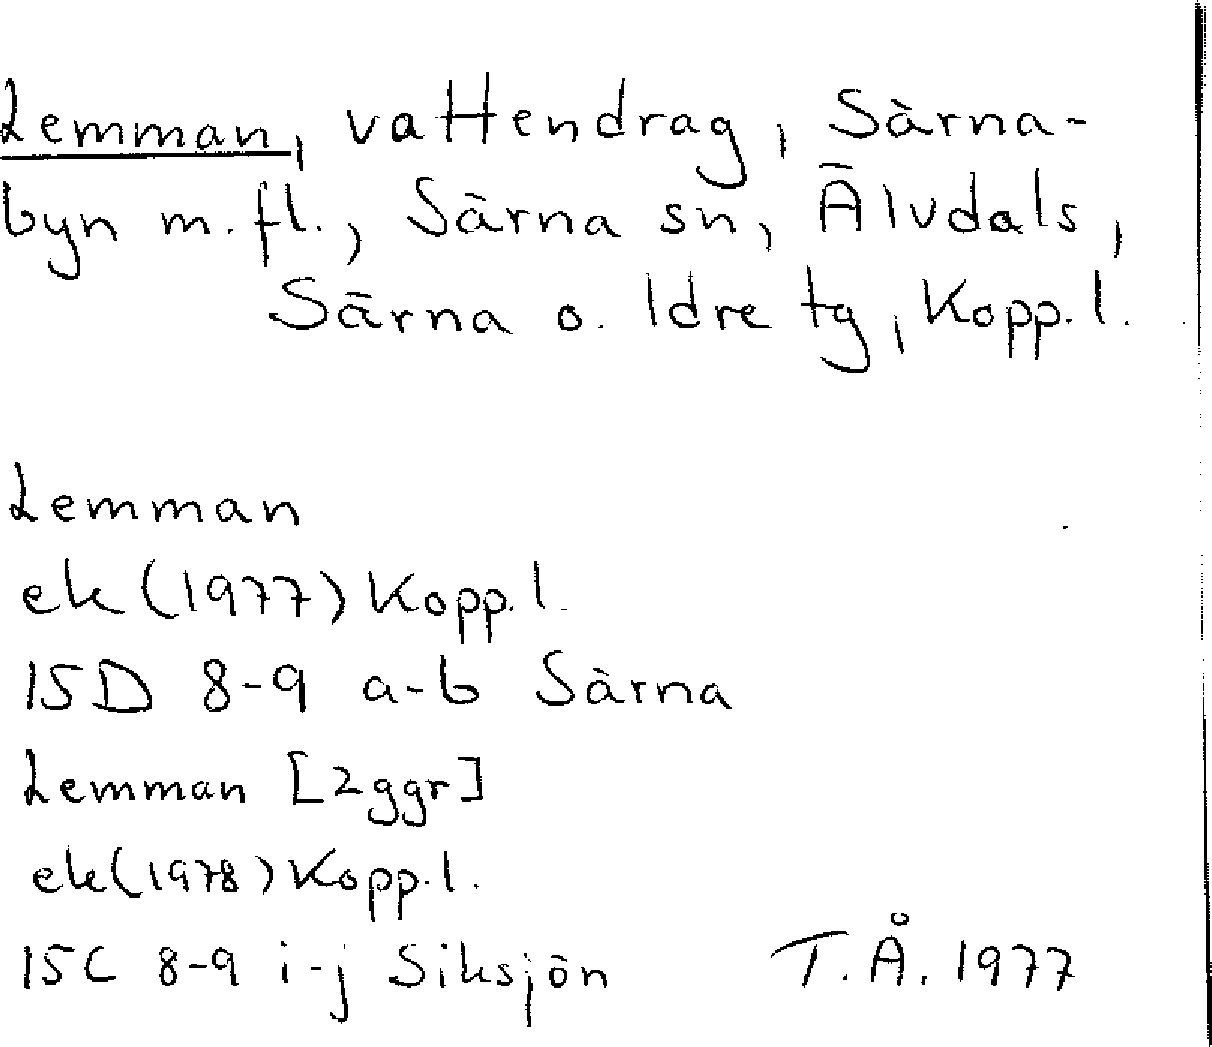 Lemman, vattendrag, Särna-
byn m. fl., Särna sn, Älvdals,
Särna o. Idre tg, Kopp. l.
Lemman
ek (1977) Kopp. l.
15D 8-9 a-b Särna
Lemman [2ggr]
ek (1978) Kopp. l.
15C 8-9 i-j Siksjön T.Å. 1977